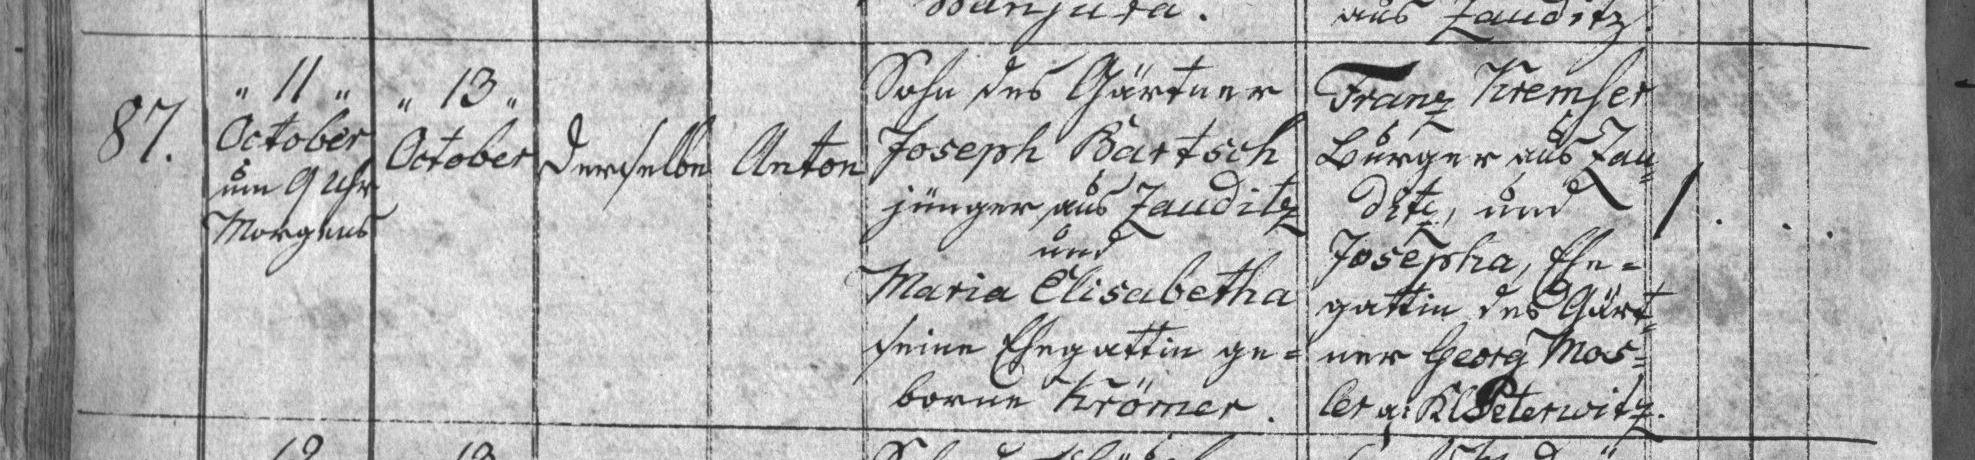 aus Zauditz
87.
" 11 "
October
um 9 Uhr
Morgens
" 13 "
October
Derselbe
Anton
Sohn des Gärtner
Joseph Bartsch
jünger aus Zauditz
und
Maria Elisabetha
seine Ehegattin ge=
borne Krömer.
Franz Kremser
Bürger aus Zau=
ditz, und
Josepha, Ehe=
gattin des Gärt=
ner Georg Mos=
ler a: Kl Peterwitz.
1.